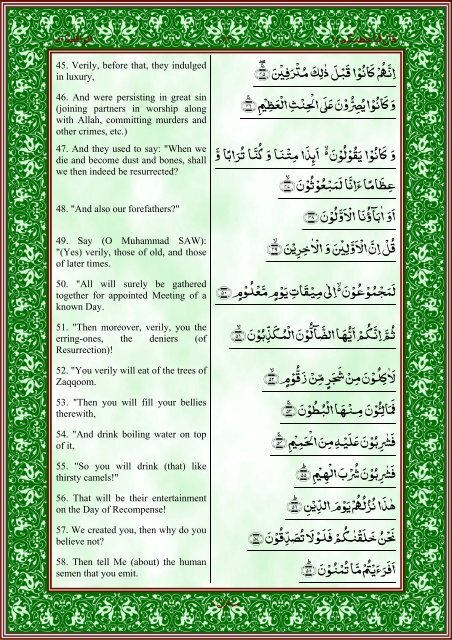 45. Verily, before that, they indulged
in luxury,
اِنَّهُمْ كَانُوْا قَبْلَ ذٰلِكَ مُتْرَفِيْنَ
46. And were persisting in great sin
(joining partners in worship along
with Allah, committing murders and
other crimes, etc.)
وَكَانُوْا يُصِرُّوْنَ عَلَى الْحِنْثِ الْعَظِيْمِ
47. And they used to say: "When we
die and become dust and bones, shall
we then indeed be resurrected?
وَ كَانُوْا يَقُوْلُوْنَ ۙ اَىِٕذَا مِتْنَا وَ كُنَّا تُرَابًا وَّ
عِظَامًا ءَاِنَّا لَمَبْعُوْثُوْنَ
48. "And also our forefathers?"
اَوَ اٰبَآؤُنَا الْاَوَّلُوْنَ
49. Say (O Muhammad SAW):
"(Yes) verily, those of old, and those
of later times.
قُلْ اِنَّ الْاَوَّلِيْنَ وَ الْاٰخِرِيْنَ
50. "All will surely be gathered
together for appointed Meeting of a
known Day.
لَمَجْمُوْعُوْنَ ۙ اِلٰى مِيْقَاتِ يَوْمٍ مَّعْلُوْمٍ
51. "Then moreover, verily, you the
erring-ones, the deniers (of
Resurrection)!
ثُمَّ اِنَّكُمْ اَيُّهَا الضَّآلُّوْنَ الْمُكَذِّبُوْنَ
52. "You verily will eat of the trees of
Zaqqoom.
لَاٰكِلُوْنَ مِنْ شَجَرٍ مِّنْ زَقُّوْمٍ
53. "Then you will fill your bellies
therewith,
فَمَالِـُٔوْنَ مِنْهَا الْبُطُوْنَ
54. "And drink boiling water on top
of it,
فَشٰرِبُوْنَ عَلَيْهِ مِنَ الْحَمِيْمِ
55. "So you will drink (that) like
thirsty camels!"
فَشٰرِبُوْنَ شُرْبَ الْهِيْمِ
56. That will be their entertainment
on the Day of Recompense!
هٰذَا نُزُلُهُمْ يَوْمَ الدِّيْنِ
57. We created you, then why do you
believe not?
نَحْنُ خَلَقْنٰكُمْ فَلَوْلَا تُصَدِّقُوْنَ
58. Then tell Me (about) the human
semen that you emit.
اَفَرَءَيْتُمْ مَّا تُمْنُوْنَ